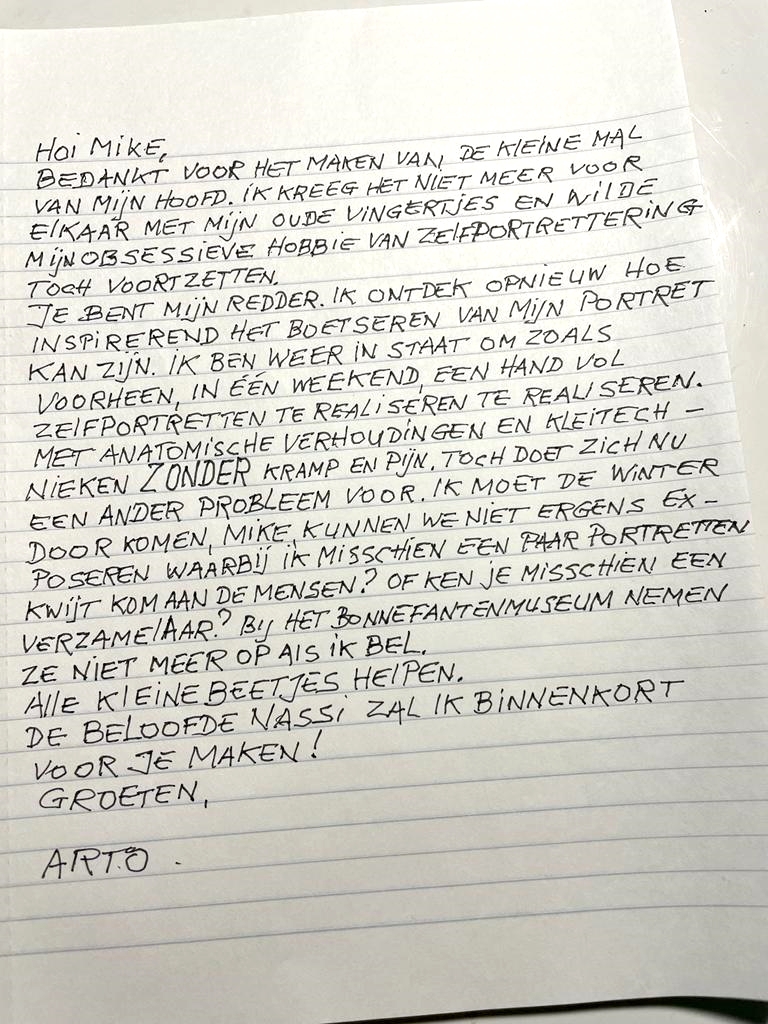 HOI MIKE,
BEDANKT VOOR HET MAKEN VAN, DE KLEINE MAL
VAN MIJN HOOFD. IK KREEG HET NIET MEER VOOR
ElKAAR MET MIJN OUDE VINGERTJES EN WILDE
MIJN OBSESSIEVE HOBBIE VAN ZElFPORTRETTERING
TOCH VOORTZETTEN.
JE BENT MIJN REDDER. IK ONTDEK OPNIEUW HOE
INSPIREREND HET BOETSEREN VAN MIJN PORTRET
KAN ZIJN. IK BEN WEER IN STAAT OM ZOALS
VOORHEEN, IN ÉÉN WEEKEND, EEN HAND VOL
ZElFPORTRETTEN TE REALISEREN TE REALISEREN.
MET ANATOMISCHE VERHOUDINGEN EN KLEITECH-
NIEKEN ZONDER KRAMP EN PIJN. TOCH DOET ZICH NU
EEN ANDER PROBLEEM VOOR. IK MOET DE WINTER
DOOR KOMEN, MIKE, KUNNEN WE NIET ERGENS EX-
POSEREN WAARBIJ IK MISSCHIEN EEN PAAR PORTRETTEN
KWIJT KOM AAN DE MENSEN? OF KEN JE MISSCHIEN EEN
VERZAMElAAR? BIJ HET BONNEFANTENMUSEUM NEMEN
ZE NIET MEER OP AlS IK BEL.
AllE KlEINE BEETJES HElPEN.
DE BELOOFDE NASSI ZAL IK BINNENKORT
VOOR JE MAKEN!
GROETEN,
ARTO.